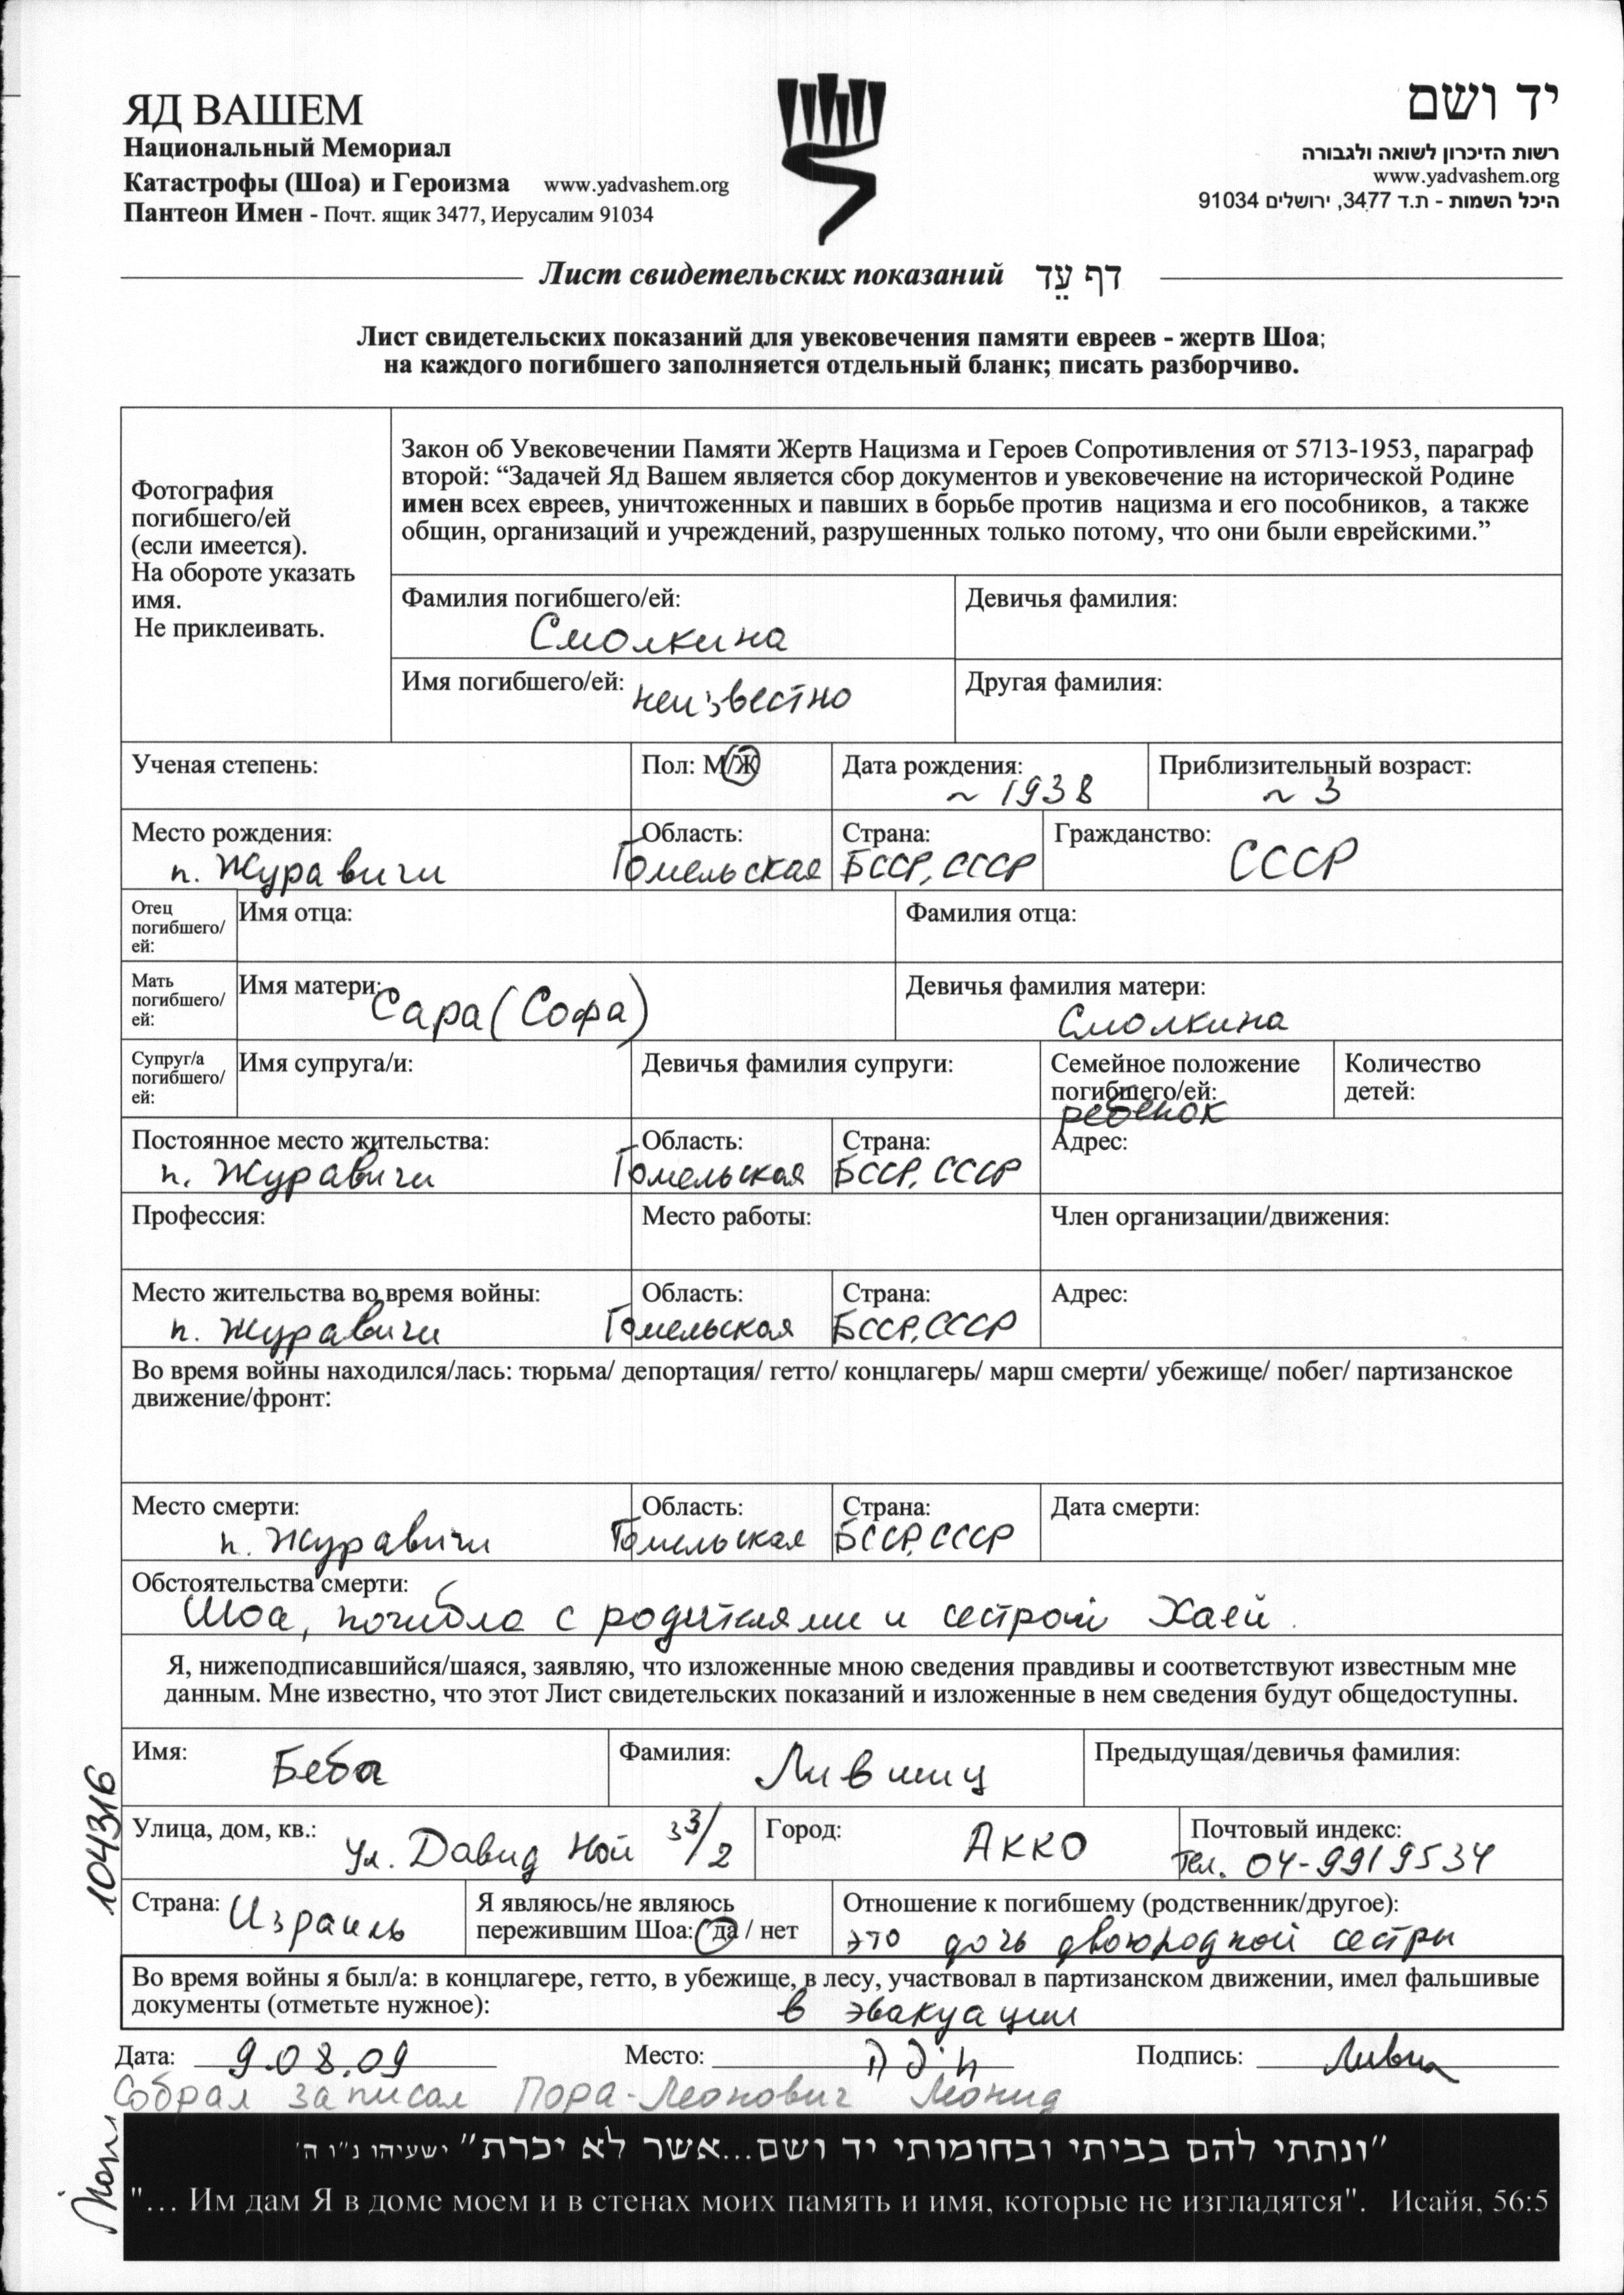 ЯД ВАШЕМ
Национальный Мемориал
Катастрофы (Шоа) и Героизма www.yadvashem.org
Пантеон Имен - Почт. ящик 3477, Иерусалим 91034
יד ושם
רשות הזיכרון לשואה ולגבורה
www.yadvashem.org
היכל השמות - ת.ד 3477, ירושלים 91034
Лист свидетельских показаний דף עֵד
Лист свидетельских показаний для увековечения памяти евреев - жертв Шоа;
на каждого погибшего заполняется отдельный бланк; писать разборчиво.
Фотография
погибшего/ей
(если имеется).
На обороте указать
имя.
Не приклеивать.
Закон об Увековечении Памяти Жертв Нацизма и Героев Сопротивления от 5713-1953, параграф
второй: “Задачей Яд Вашем является сбор документов и увековечение на исторической Родине
имен всех евреев, уничтоженных и павших в борьбе против нацизма и его пособников, а также
общин, организаций и учреждений, разрушенных только потому, что они были еврейскими.”
Фамилия погибшего/ей: Девичья фамилия:
Смолкина
Имя погибшего/ей: неизвестно Другая фамилия:
Ученая степень: Пол: М/Ж Дата рождения: Приблизительный возраст:
~ 1938 ~ 3
Место рождения: Область: Страна: Гражданство:
п. Журавичи Гомельская БССР, СССР СССР
Отец
погибшего/
ей:
Имя отца: Фамилия отца:
Мать
погибшего/
ей:
Имя матери: Сара (Софа) Девичья фамилия матери:
Смолкина
Супруг/а
погибшего/
ей:
Имя супруга/и: Девичья фамилия супруги: Семейное положение
погибшего/ей:
ребенок
Количество
детей:
Постоянное место жительства: Область: Страна: Адрес:
п. Журавичи Гомельская БССР, СССР
Профессия: Место работы: Член организации/движения:
Место жительства во время войны: Область: Страна: Адрес:
п. Журавичи Гомельская БССР, СССР
Во время войны находился/лась: тюрьма/ депортация/ гетто/ концлагерь/ марш смерти/ убежище/ побег/ партизанское
движение/фронт:
Место смерти: Область: Страна: Дата смерти:
п. Журавичи Гомельская БССР, СССР
Обстоятельства смерти:
Шоа, погибла с родителями и сестрой Хаей.
Я, нижеподписавшийся/шаяся, заявляю, что изложенные мною сведения правдивы и соответствуют известным мне
данным. Мне известно, что этот Лист свидетельских показаний и изложенные в нем сведения будут общедоступны.
Имя: Беба Фамилия: Лившиц Предыдущая/девичья фамилия:
Улица, дом, кв.: ул. Давид Ной 33/2 Город: Акко Почтовый индекс:
тел. 04-9919534
Страна: Израиль Я являюсь/не являюсь
пережившим Шоа: да / нет
Отношение к погибшему (родственник/другое):
это дочь двоюродной сестры
Во время войны я был/а: в концлагере, гетто, в убежище, в лесу, участвовал в партизанском движении, имел фальшивые
документы (отметьте нужное): в эвакуации
Дата: 9.08.09 Место: Подпись:
Собрал записал Пора-Леонович Леонид
104316
”ונתתי להם בביתי ובחומותי יד ושם...אשר לא יכרת” ישעיהו נ"ו ה'
"... Им дам Я в доме моем и в стенах моих память и имя, которые не изгладятся". Исайя, 56:5